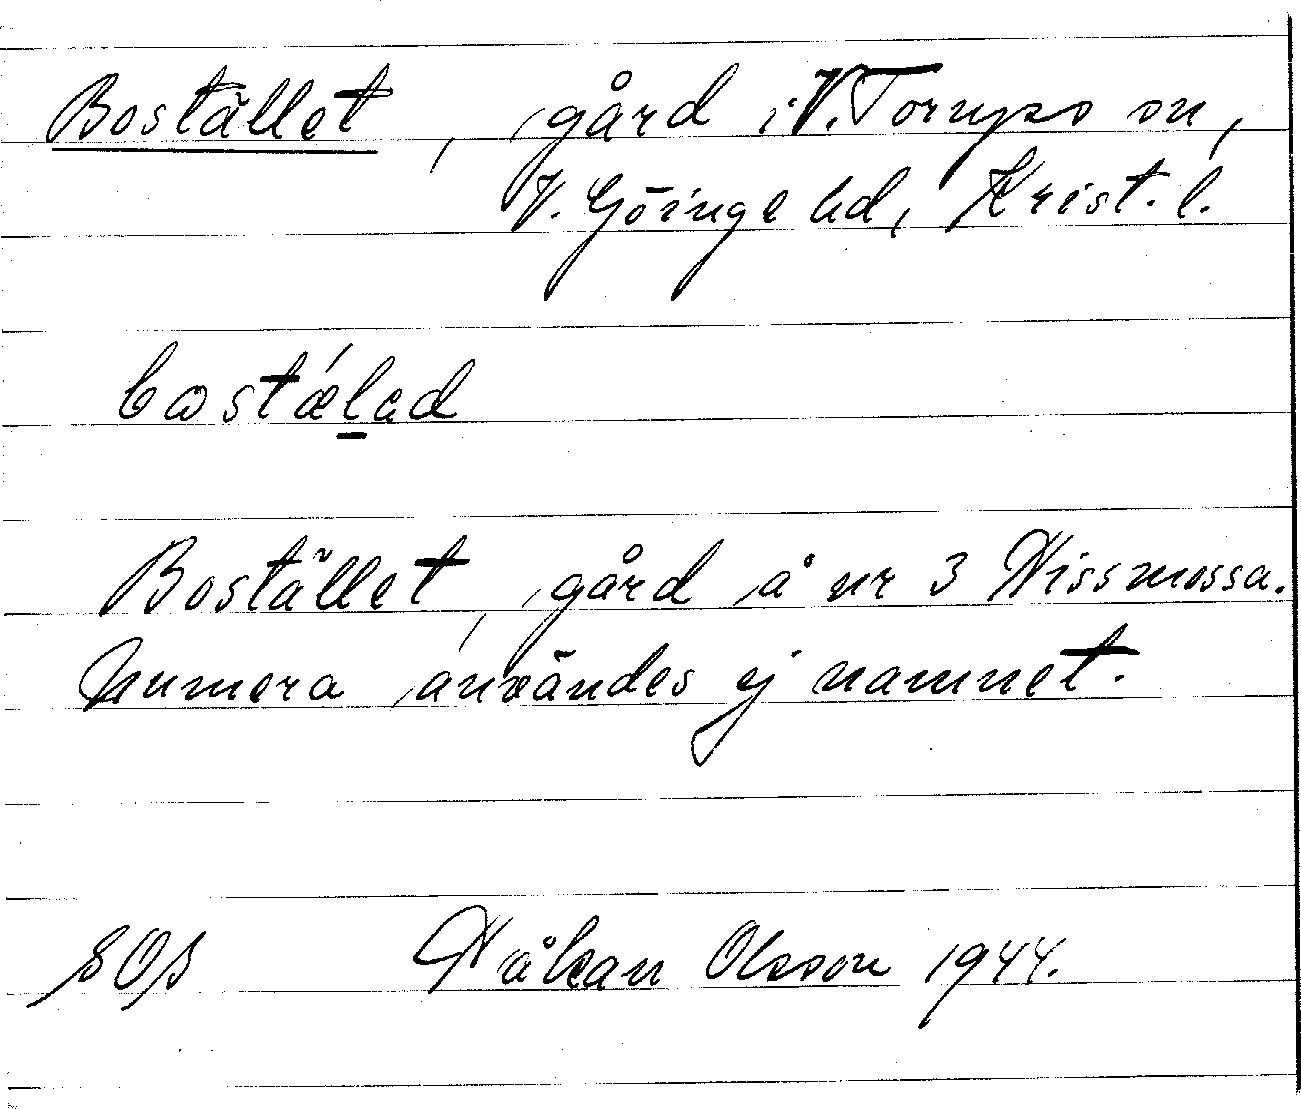 Bostället, gård i V. Torups sn,
V. Göinge hd, Krist. l.
bostǽlad
Bostället, gård å nr 3 Nissmossa.
Numera användes ej namnet.
SOS Håkan Olsson 1944.